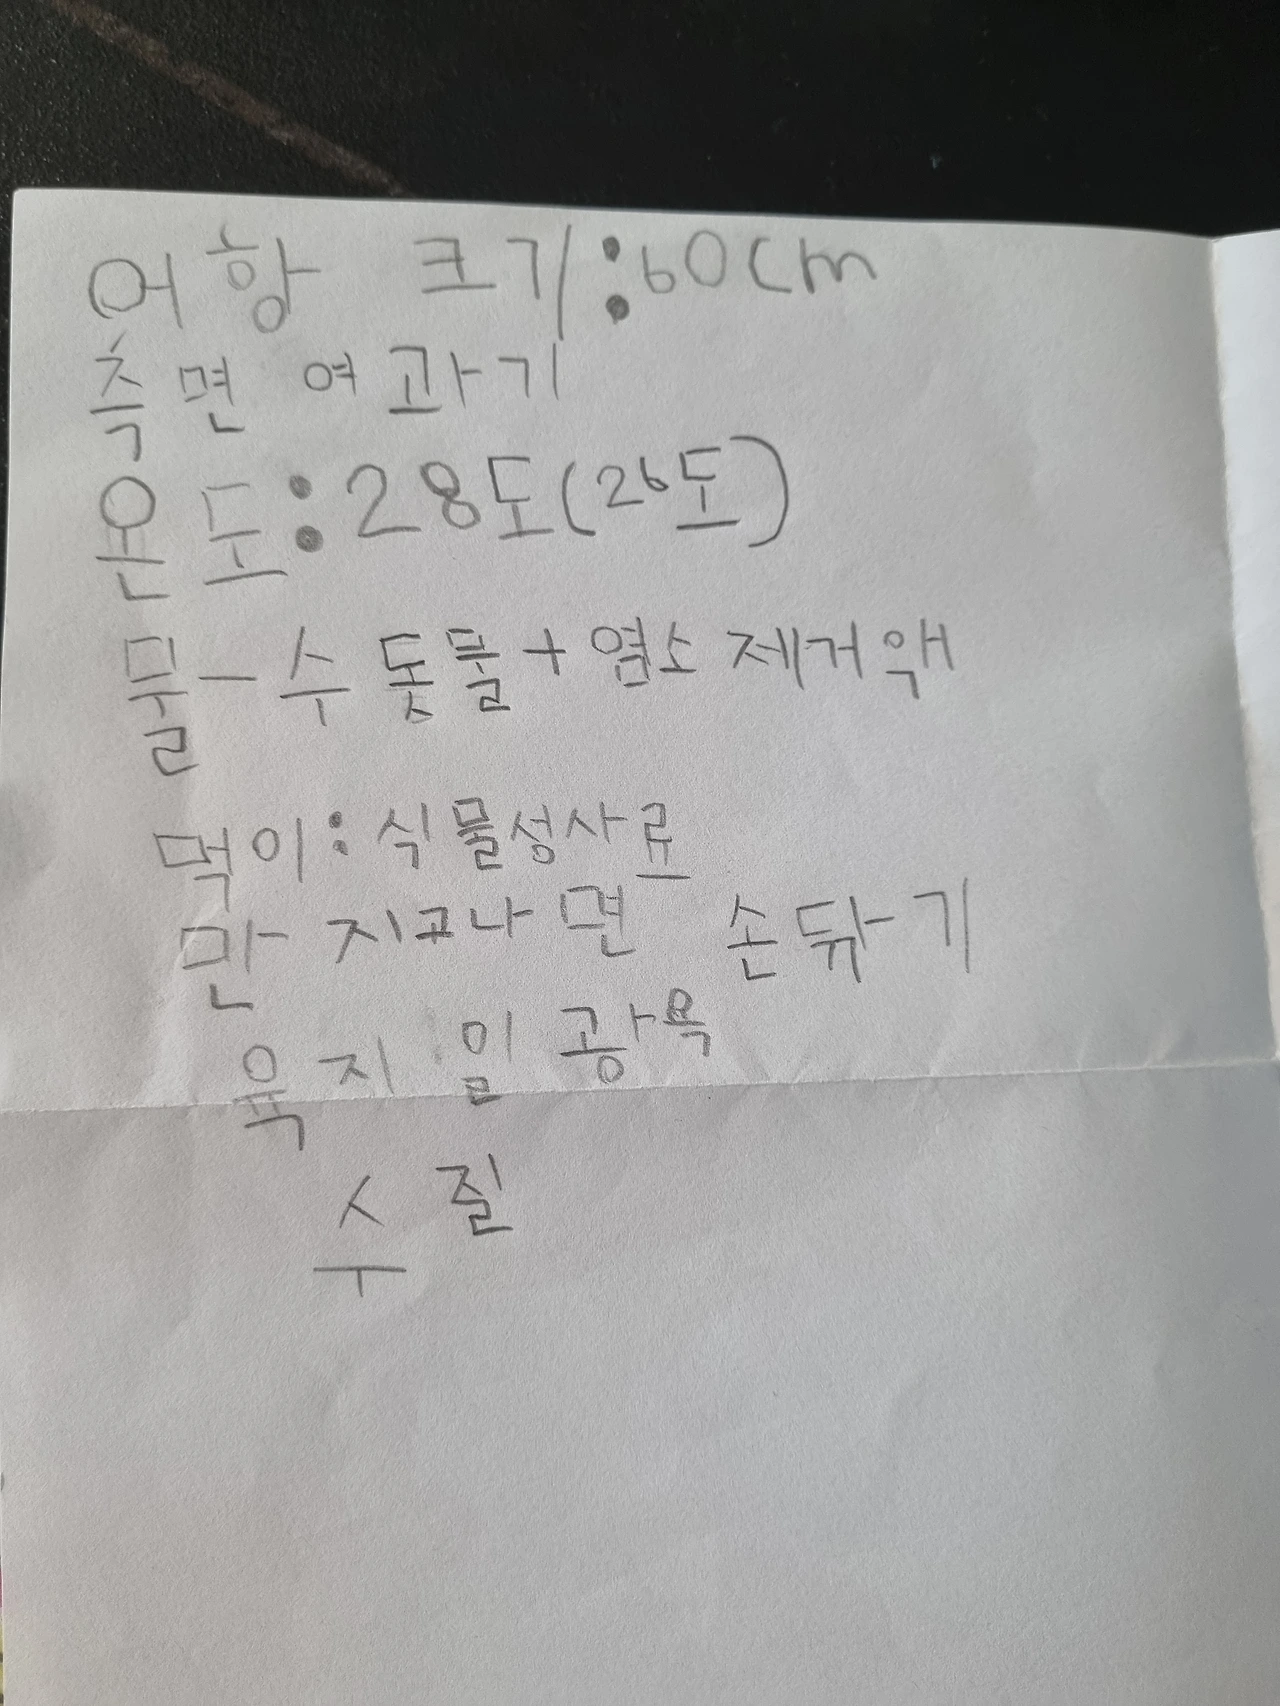 어항 크기:60cm
측면 여과기
온도:28도(26도)
물-수돗물+염소제거액
먹이:식물성사료
만지고나면 손닦기
육지 일광욕
수질